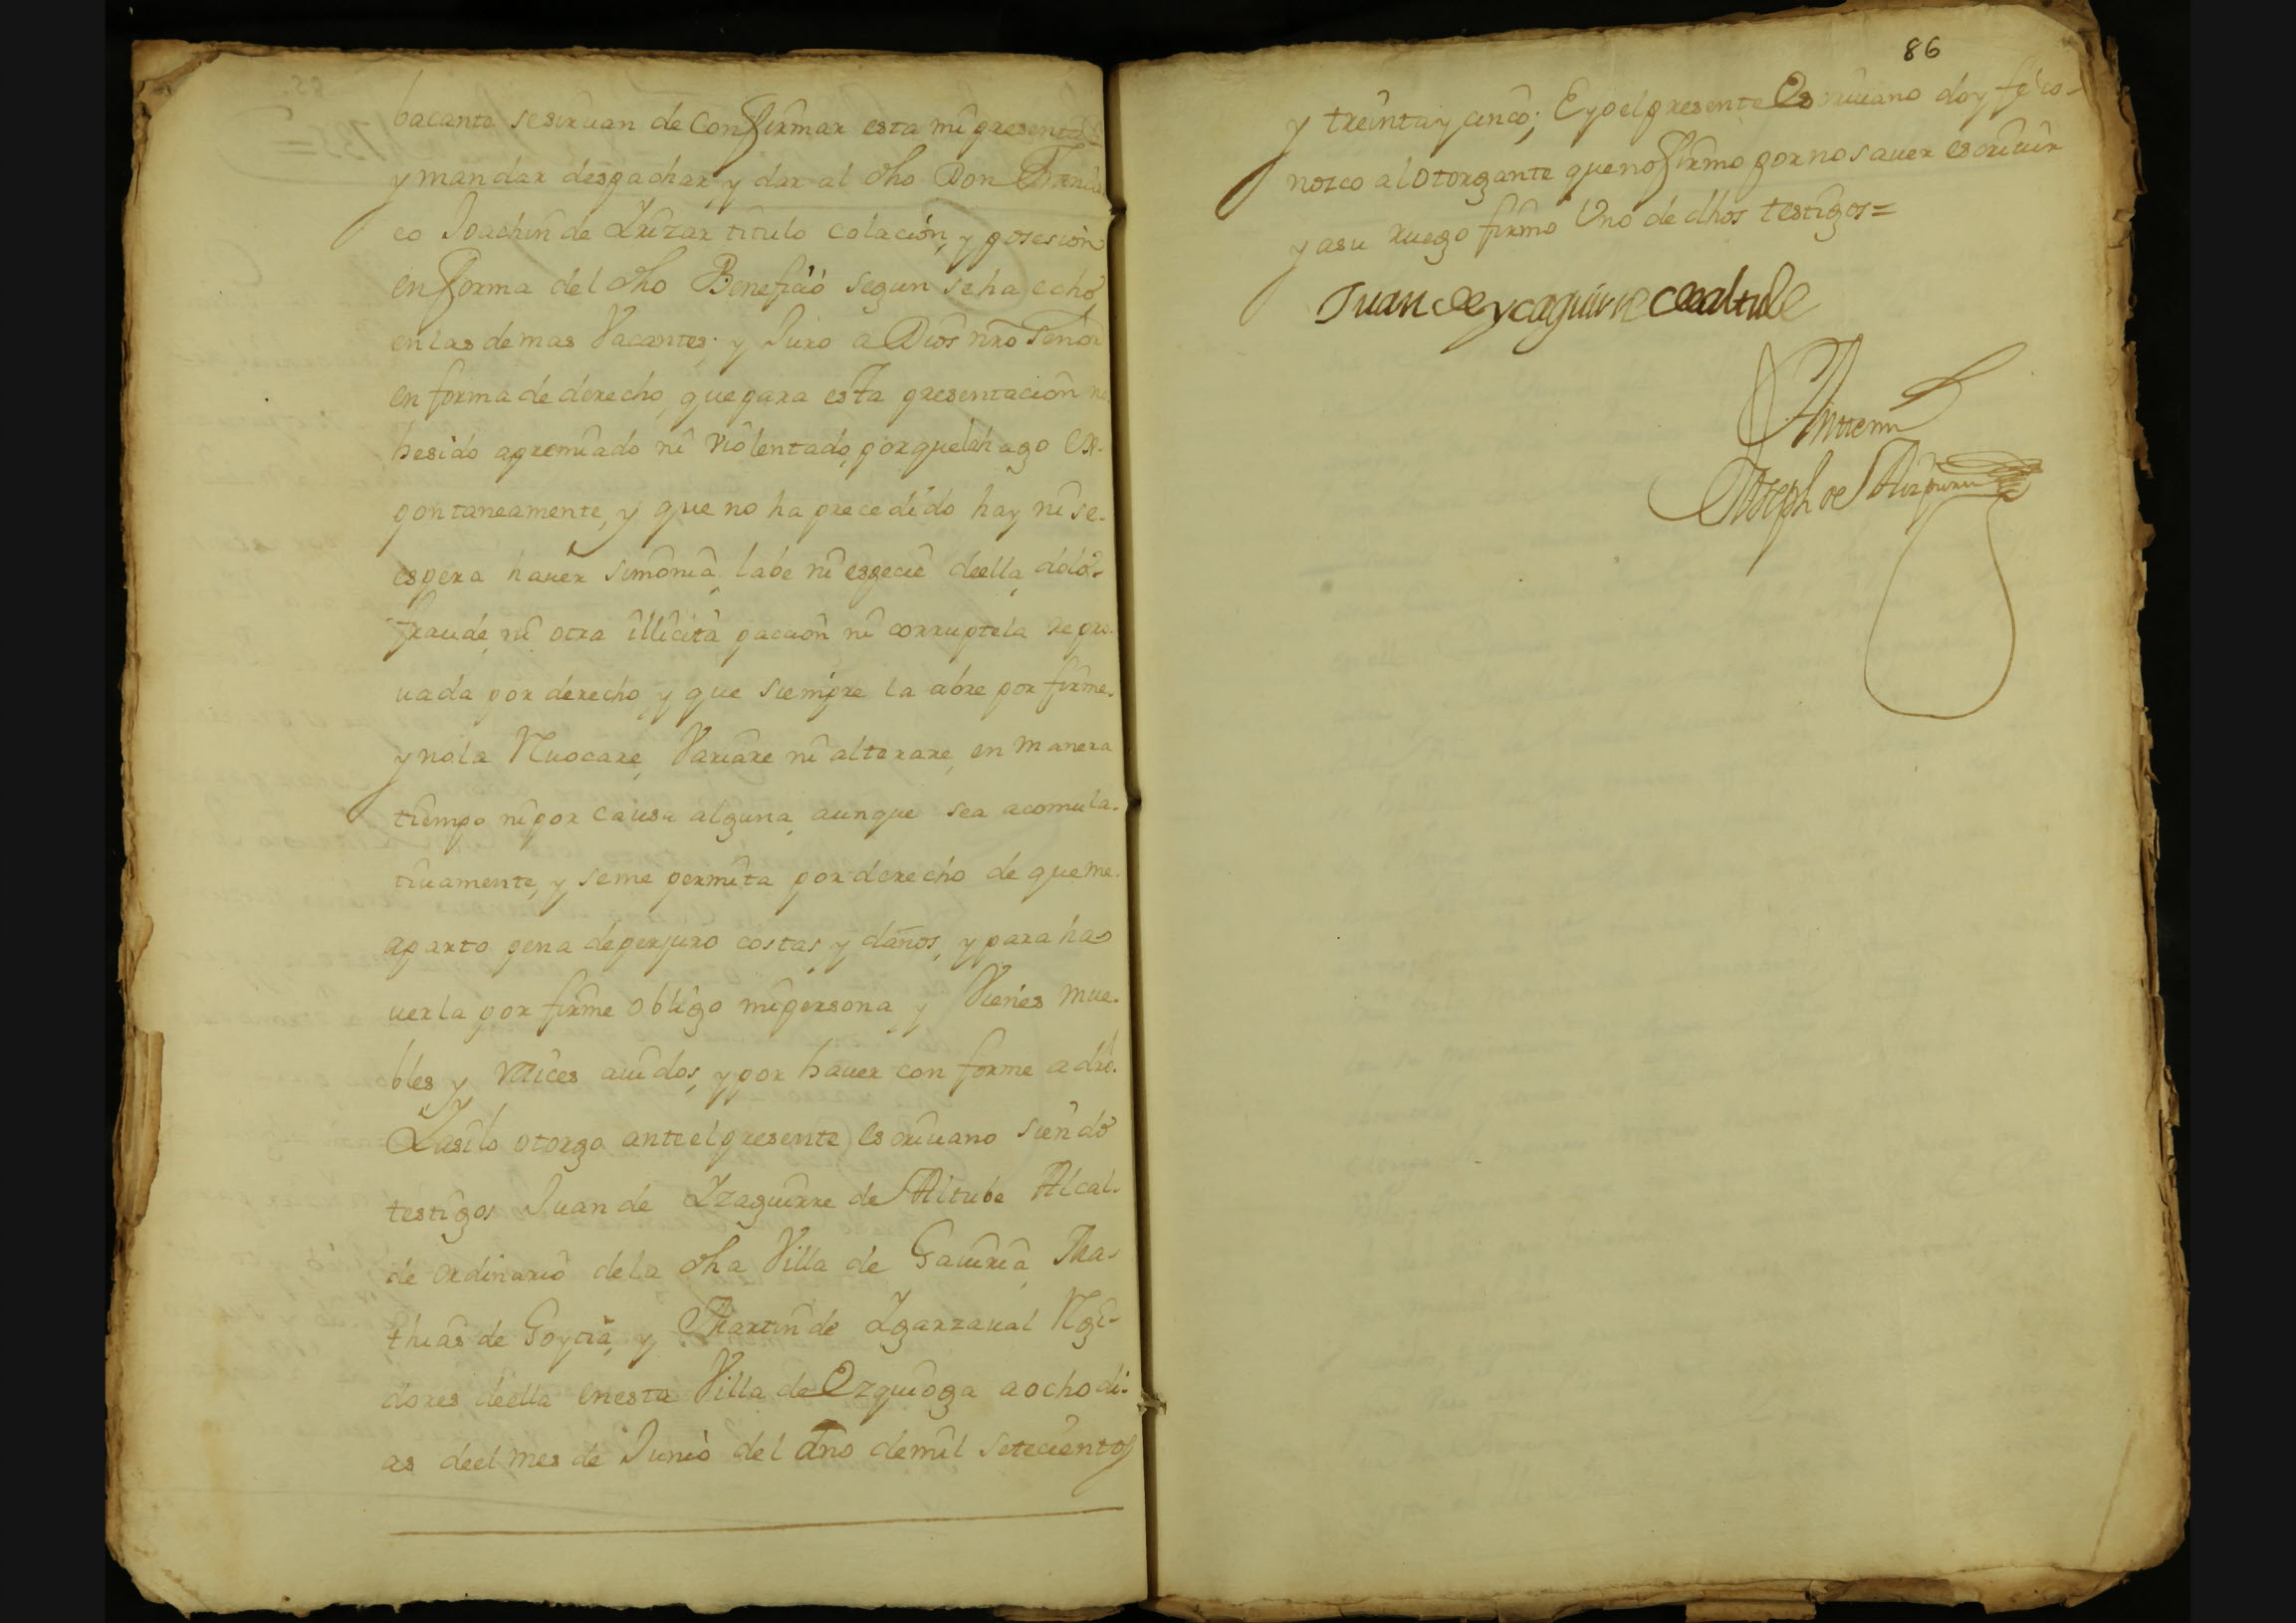 bacante sesiruan de Confirmar esta mi presenta
y mandar despachar, y dar al dho Don Francis
co Joachin de Yrizar titulo colacion, y posesion
en forma del dho Beneficio segun se ha echo
en las demas Vacantes; y Juro a Dios nro Señor
en forma de derecho, que para esta presentacion no
he sido apremiado ni violentado, porque la hago ex-
pontaneamente, y que no ha precedido hay ni se-
espera hauer simonia, labe ni especie deella, dolo-
fraude, ni otra illicita paccion ni corruptela repro-
uada por derecho y que siempre la abre por firme-
y no la Reuocare, Variare ni alterare, en manera
tiempo ni por causa alguna, aunque sea acomula-
tiuamente, y seme permita por derecho de que me-
aparto pena de perjuro costas, y daños, y para ha-
uerla por firme obligo mi persona y Vienes mue-
bles y raices auidos, y por hauer conforme a dro.
Y asi lo otorgo ante el presente escriuano siendo
testigos Juan de Yzaguirre de Altube Alcal-
de ordinario de la dha Villa de Gauiria, Ma-
thias de Goytia, y Martin de Ygarzaual Regi-
dores deella en esta Villa de Ezquioga a ocho di-
as deel mes de Junio del año de mil setecientos
86
y treinta y cinco; E yo el presente Escriuano doy fé co-
nozco al otorgante que no firmo por no sauer escriuir
y asu ruego firmo Uno de dhos testigos=
Juan de ycaguirre de altube
Ante mi
Joseph de